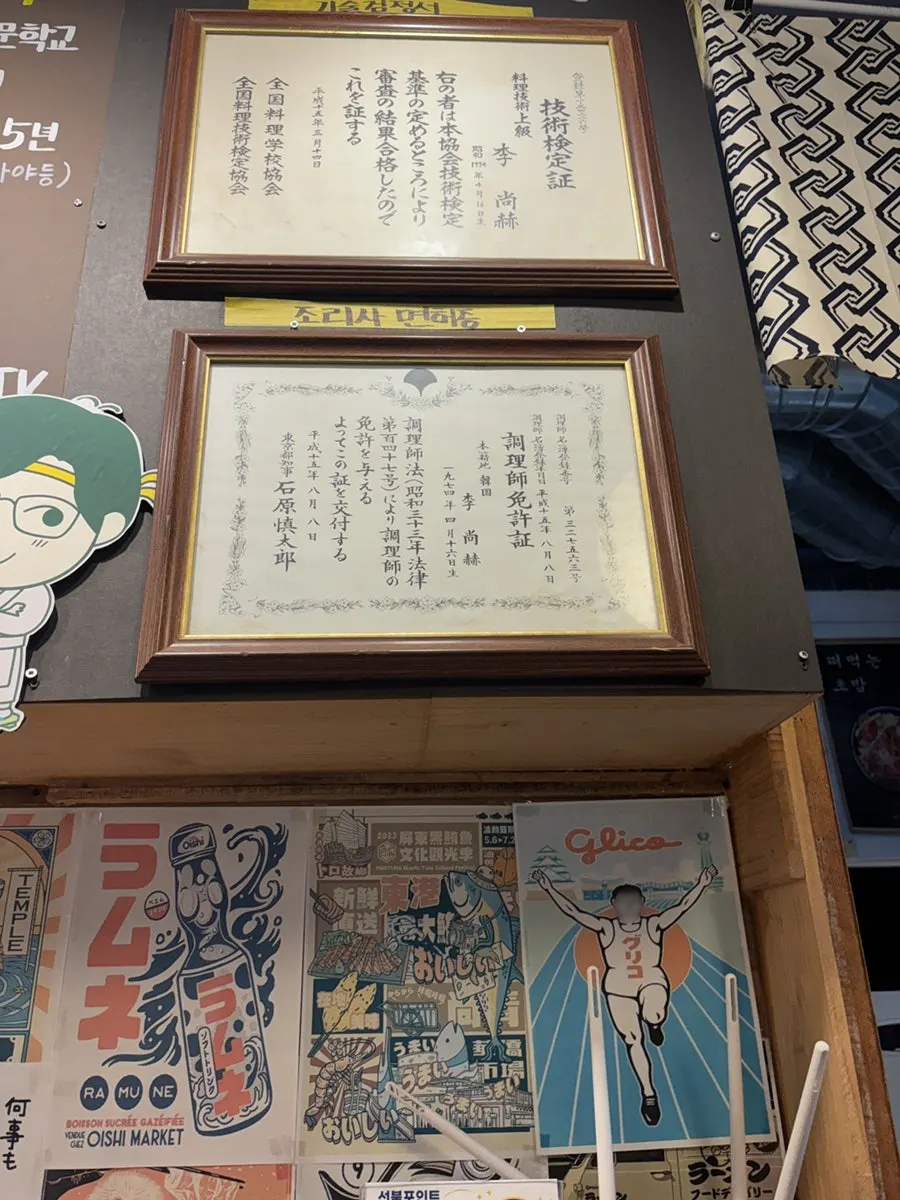 문학교
5년
야등)
기술검정서
技術検定証
料理技術上級
李 尚赫
昭和 1974 年 4 月 16 日生
右の者は本協会技術検定
基準の定めるところにより
審査の結果合格したので
これを証する
平成十五年三月十四日
全国料理学校協会
全国料理技術検定協会
조리사 면허증
調理師名簿登録番号 第三二七五六三号
調理師名簿登録年月日 平成十五年八月八日
調理師免許証
本籍地 韓国
李 尚赫
一九七四年四月十六日生
調理師法(昭和三十三年法律
第百四十七号)により調理師の
免許を与える
よってこの証を交付する
平成十五年八月八日
東京都知事 石原慎太郎
떠먹는
초밥
TEMPLE
ラムネ
Oishi
ラムネ
RA MU NE
BOISSON SUCRÉE GAZÉIFIÉE
VENDUE CHEZ OISHI MARKET
2023
屏東黑鮪魚
文化觀光季
5.6
トロ故鄉
新鮮
東港
大鮪
おいしい
うまい
おいしい
Glico
グリコ
何事も
ラーメン
フードデリバリー
선불포인트